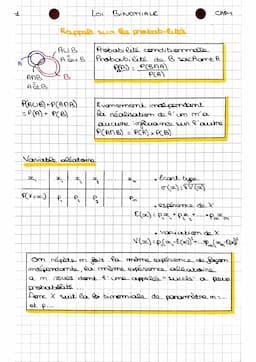 1
LOI BINOMIALE
CHAP1
Rappels sur les probabilité
A∪B
A ou B
A
B
A∩B
A et B
Probabilité conditionnelle
Probabilité de B sachant A
P(B) = P(B∩A)
P(A)
P(A∪B)+P(A∩B)
=P(A) + P(B)
Evenement indépendant
la réalisation de l'un n'a
aucune influence sur l'autre
P(A∩B) = P(A) × P(B)
Variable aléatoire
• écart type
σ(x)=√V(X)
• espérance de X
• variation de X
On répète n fois la même expérience de façon
indépendante, la même expérience aléatoire
à n issues dont l'une appelée "succès" a pour
probabilité
Donc X suit la loi binomiale de paramètre n
et p